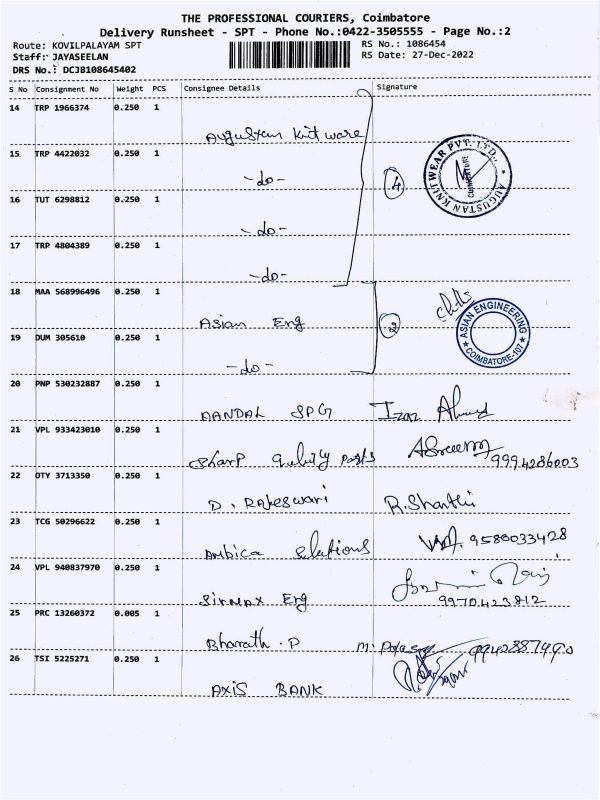 THE PROFESSIONAL COURIERS, Coimbatore
Delivery Runsheet - SPT - Phone No.:0422-3505555 - Page No.:2
Route: KOVILPALAYAM SPT
RS No.: 1086454
Staff: JAYASEELAN
RS Date: 27-Dec-2022
DRS No.: DCJB108645402
S No Consignment No Weight PCS Consignee Details Signature
14 TRP 1966374 0.250 1
Augustan Knit ware
15 TRP 4422032 0.250 1
-do-
4
AUGUSTAN KNITWEAR PVT. LTD.
COIMBATORE
16 TUT 6298812 0.250 1
-do-
17 TRP 4804389 0.250 1
-do-
18 MAA 568996496 0.250 1
Asian Eng
2
ASIAN ENGINEERING
COIMBATORE-107
19 DUM 305610 0.250 1
-do-
20 PNP 530232887 0.250 1
AANDAL SPG Izaz Ahmed
21 VPL 933423010 0.250 1
Sharp Quality parts 9994286003
22 OTY 3713350 0.250 1
D. Rajeswari R. Shanthi
23 TCG 50296622 0.250 1
Ambica Solutions 9580033428
24 VPL 940837970 0.250 1
Sirmax Eng 9970423812
25 PRC 13260372 0.005 1
Bharath. P
26 TSI 5225271 0.250 1
AXIS BANK